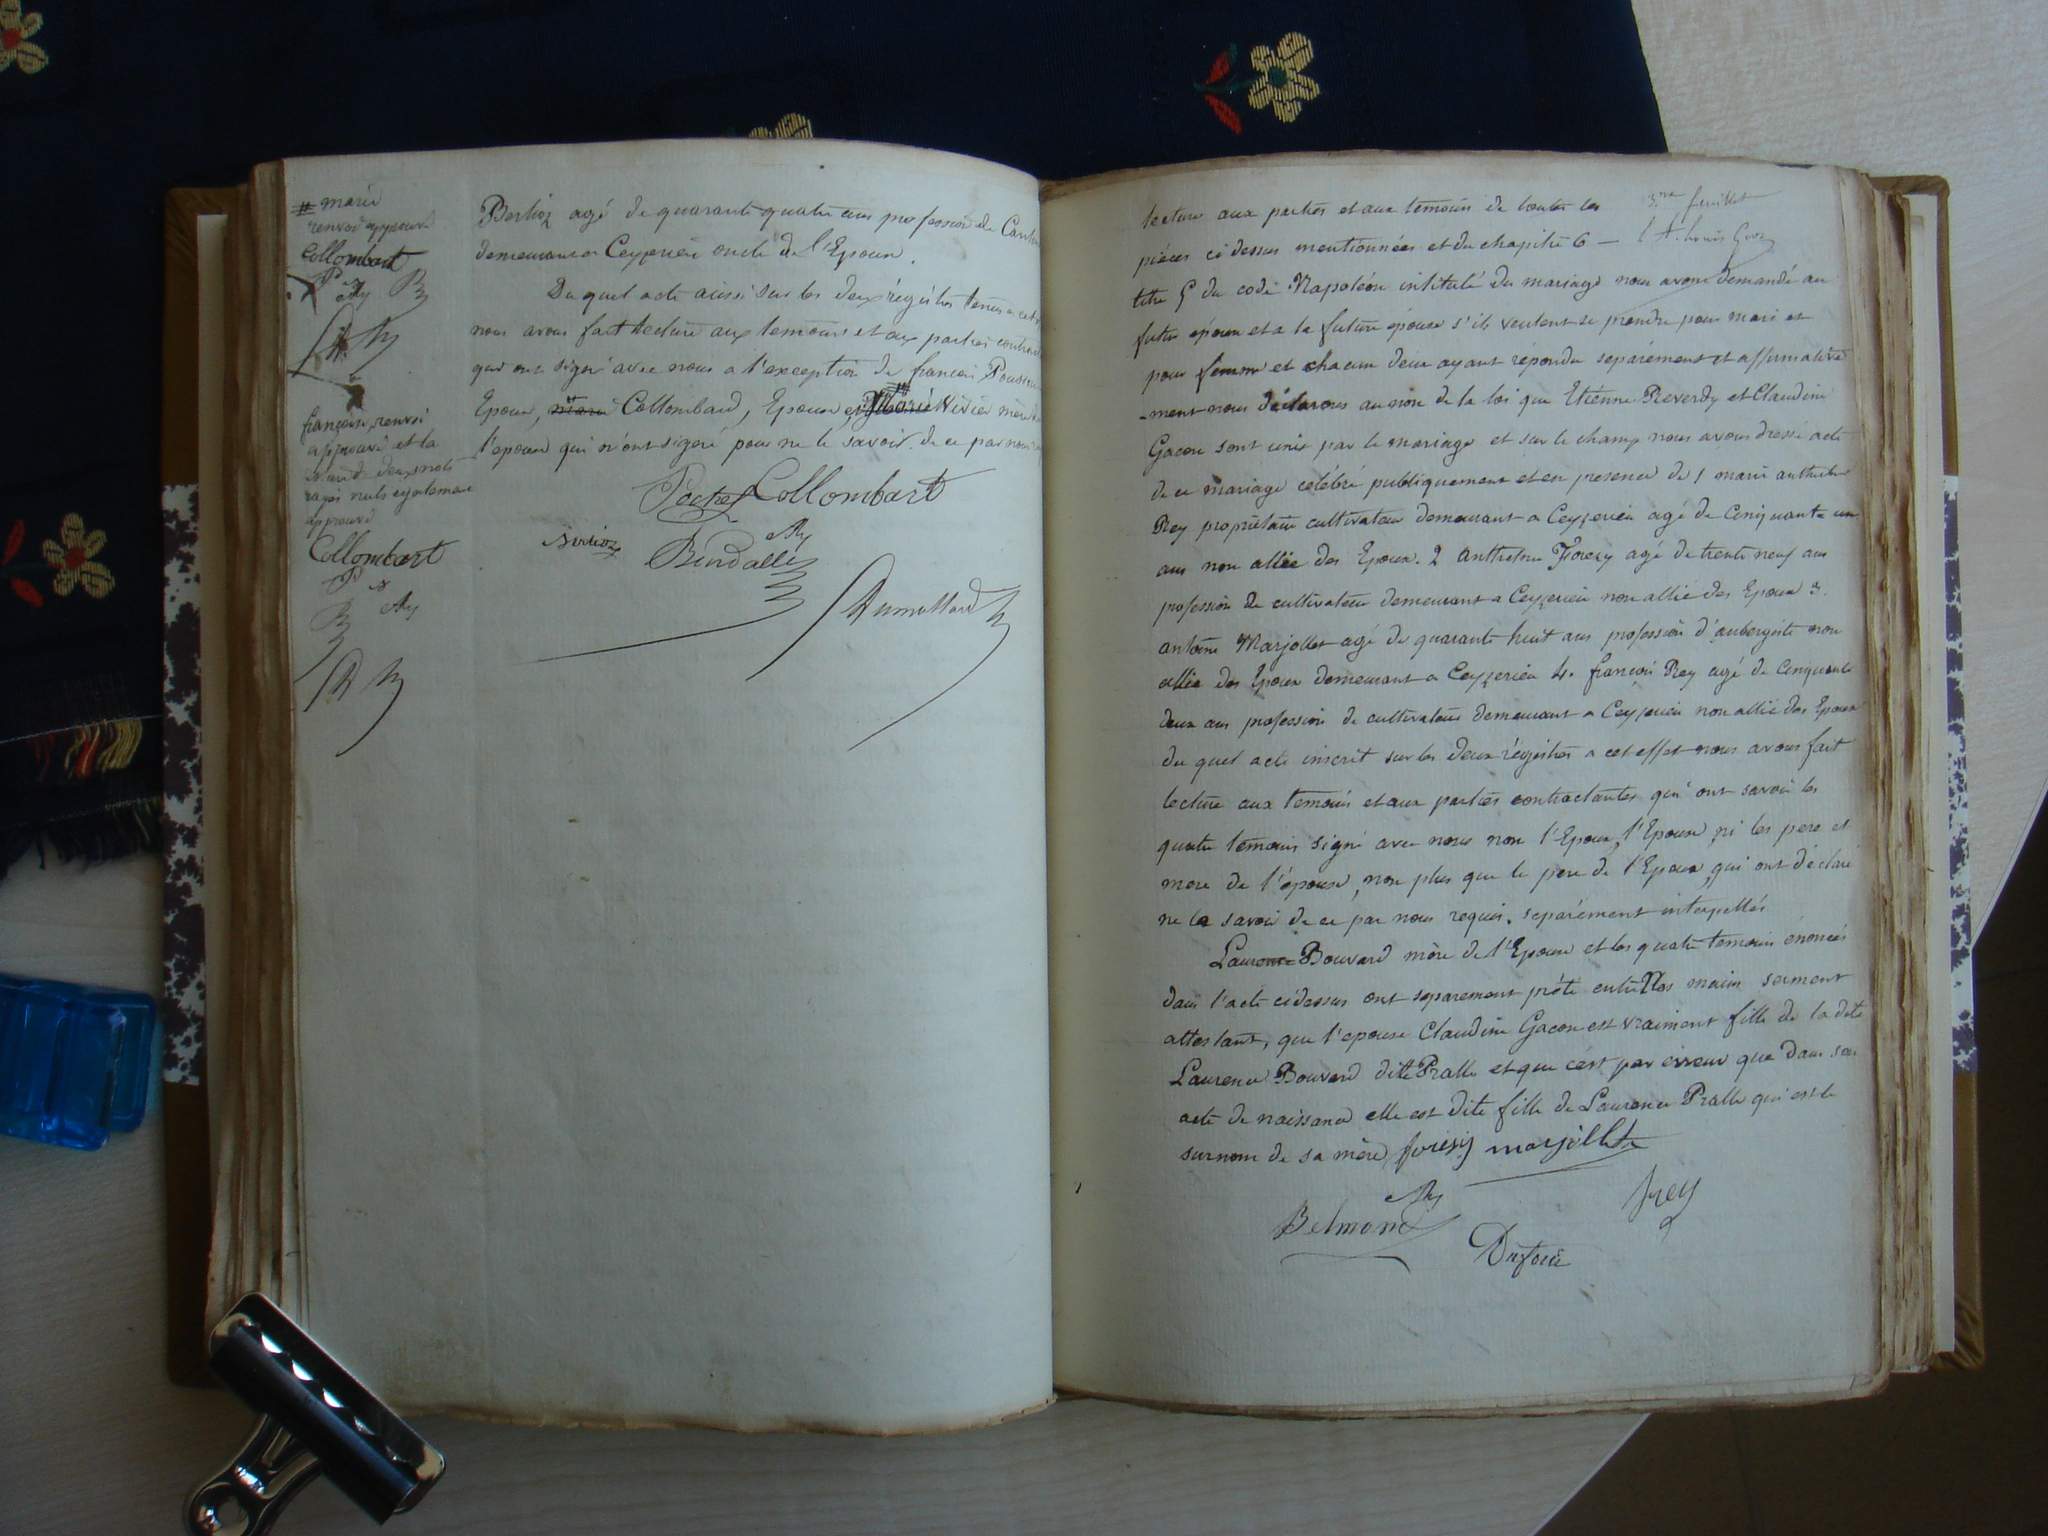 marie
renvoi approuvé
Collombart
françoise, renvoi
approuvé et la
deux mots
rayés nuls également
approuvé
Collombart
Berlioz agé de quarante quatre ans profession de
demeurant a Ceyzerieu oncle de l'Epoux.
Du quel acte aussi sur les deux régistres tenus a cet
nous avons fait lecture aux temoins et aux parties
qui ont signé avec nous a l'exception de françois
Epoux, marie Collombard, Epouse et Marie mère de
l'epouse qui n'ont signé pour ne le savoir de ce par nous
Collombart
Berlioz
Dumollard
3me feuillet
lecture aux parties et aux temoins de toutes les
pièces ci dessus mentionnées et du chapitre 6 —
titre 5 du code Napoléon intitulé du mariage nous avons demandé au
futur epoux et a la future épouse s'ils veulent se prendre pour mari et
pour femme et chacun deux ayant répondu separément et affirmative
-ment nous déclarons au nom de la loi que Etiénne Reverdy et Claudine
Gacon sont unis par le mariage et sur le champ nous avons dressé acte
de ce mariage célébré publiquement et en presence de 1 marin anthelme
Rey propriétaire cultivateur demeurant a Ceyzerieu agé de Cinquante un
ans non allié des Epoux. 2 anthelme Forezy agé de trente neuf ans
profession de cultivateur demeurant a Ceyzerieu non allié des Epoux 3.
antoine Marjollet agé de quarante huit ans profession d'aubergiste non
allié des Epoux demeurant a Ceyzerieu 4. françois Rey agé de Cinquante
deux ans profession de cultivateur demeurant a Ceyzerieu non allié des Epoux
du quel acte inscrit sur les deux régistres a cet effet nous avons fait
lecture aux temoins et aux parties contractantes qui ont savoir les
quatre temoins signé avec nous non l'Epoux, l'Epouse, ni les pere et
mere de l'épouse, non plus que le pere de l'Epoux, qui ont déclaré
ne le savoir de ce par nous requis. separément interpellés
Laurence Bouvard mère de l'Epouse et les quatre temoins énoncés
dans l'acte cidessus ont separement prété entre Nos mains serment
attestant, que l'epouse Claudine Gacon est vraiment fille de la dite
Laurence Bouvard ditte Pralle et que c'est par erreur que dans son
acte de naissance elle est dite fille de Laurence Pralle qui est le
surnom de sa mère forezy marjollet
Rey
Belmond
frey
Dufour